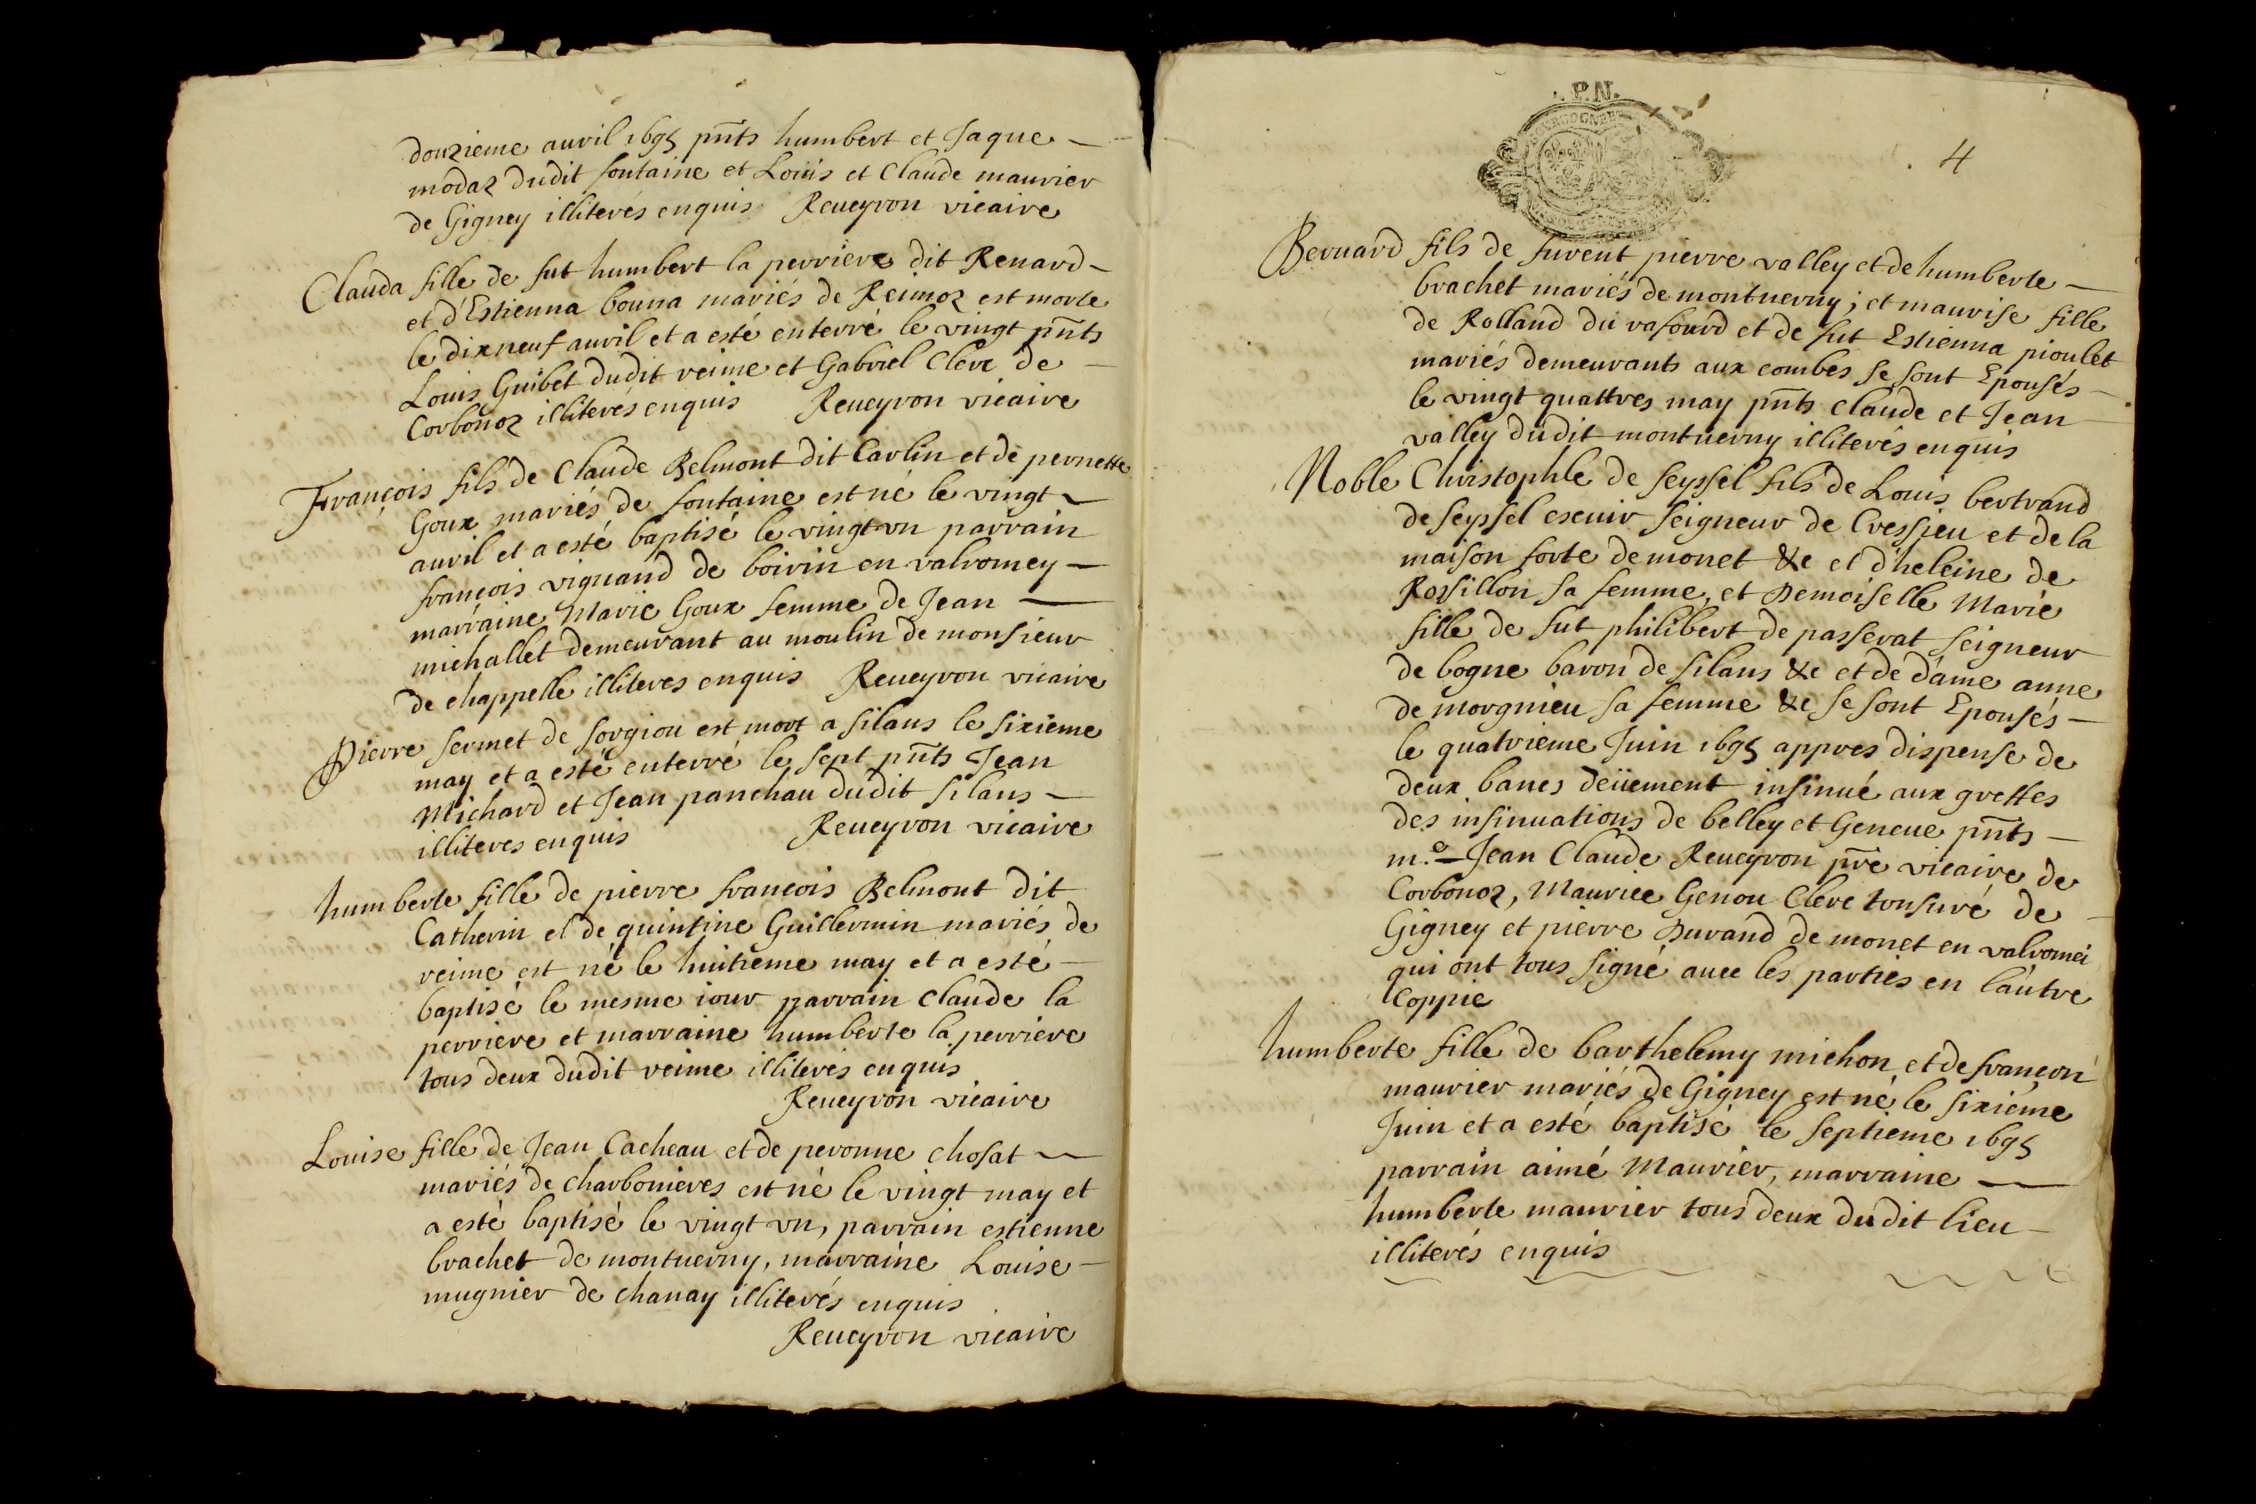 douzieme auril 1695 pnts humbert et Jaque
modaz dudit fontaine et Louis et Claude maurier
de Gigney illiterés enquis Reueyron vicaire
Clauda fille de fut humbert la perriere dit Renard
et d'Estienna bouna mariés de Reimoz est morte
le dixneuf auril et a esté enterré le vingt pnts
Louis Guibet dudit reime et Gabriel Clerc de
Corbonoz illiterés enquis Reueyron vicaire
François fils de Claude Belmont dit Carlin et de pernette
Goux mariés de fontaine est né le vingt
auril et a esté baptisé le vingt vn parrain
françois vignand de boirin en valromey
marraine Marie Goux femme de Jean
michallet demeurant au moulin de monsieur
de chappelle illiteres enquis Reueyron vicaire
Pierre sermet de sorgiou est mort a silans le sixieme
may et a esté enterré le sept pnts Jean
Michard et Jean panchau dudit silans
illiteres enquis Reueyron vicaire
humberte fille de pierre françois Belmont dit
Catherin et de quintine Guillermin mariés de
reime est né le huitieme may et a esté
baptisé le mesme iour parrain Claude la
perriere et marraine humberte la perriere
tous deux dudit reime illiterés enquis
Reueyron vicaire
Louise fille de Jean Cacheau et de peronne chosat
mariés de charbonieres est né le vingt may et
a esté baptisé le vingt vn, parrain estienne
brachet de montuerny, marraine Louise
mugnier de chanay illiterés enquis
Reueyron vicaire
P.N.
4
Bernard fils de furent pierre valley et de humberte
brachet mariés de montuerny; et maurise fille
de Rolland du rafourd et de fut Estienna pioulet
mariés demeurants aux combes se sont Epousés
le vingt quattres may pnts Claude et Jean
valley dudit montuerny illiterés enquis
Noble Christophle de seyssel fils de Louis bertrand
de seyssel escuir seigneur de Cressieu et de la
maison forte de monet &c et d'heleine de
Rossillon sa femme, et Demoiselle Marie
fille de fut philibert de passerat seigneur
de bogne baron de silans &c et de dame anne
de morgnieu sa femme &c se sont Epousés
le quatrieme Juin 1695 appres dispense de
deux bancs deüement insinué aux greffes
des insinuations de belley et Geneue pnts
m.e Jean Claude Reueyron pre vicaire de
Corbonoz, Maurice Genou Clerc tonsuré de
Gigney et pierre Durand de monet en valromei
qui ont tous signé auec les parties en l'autre
Coppie
humberte fille de barthelemy michon et de françon
maurier mariés de Gigney est né le sixiéme
Juin et a esté baptisé le septieme 1695
parrain aimé Maurier, marraine
humberte maurier tous deux dudit lieu
illiterés enquis